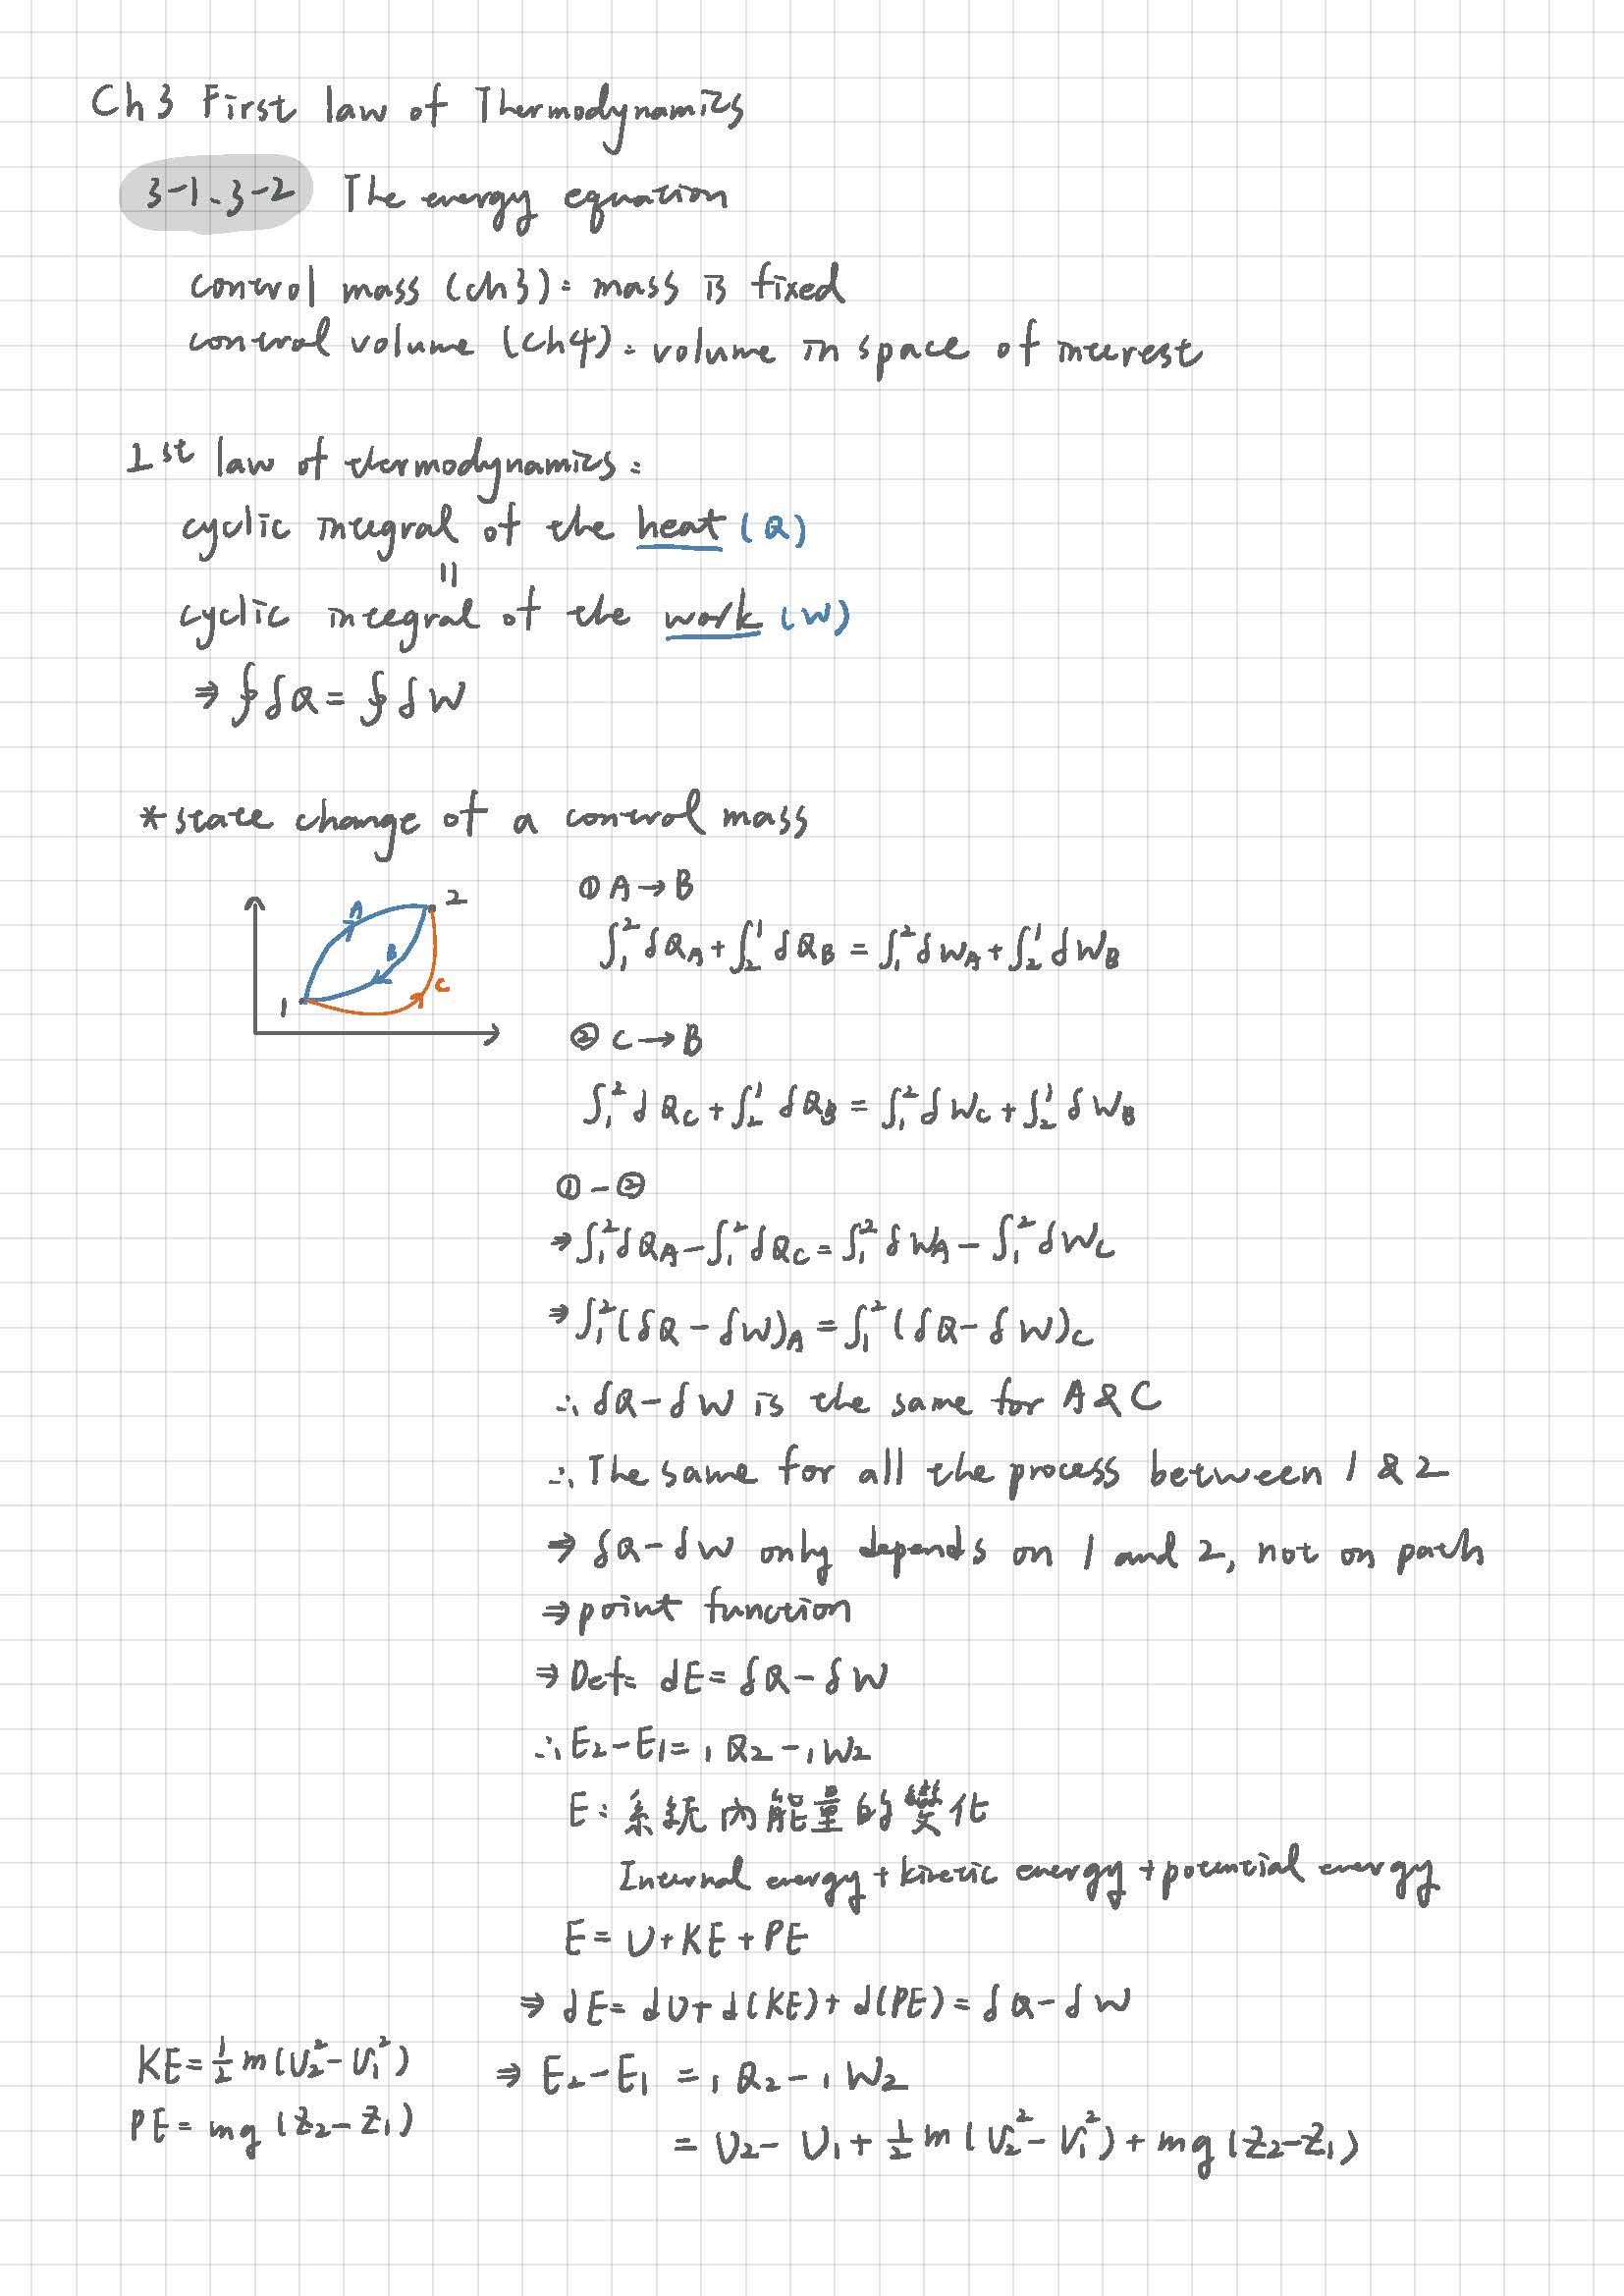 Ch3 First law of Thermodynamics
3-1、3-2 The energy equation
control mass (ch3): mass is fixed
control volume (ch4): volume in space of interest
1st law of thermodynamics:
cyclic integral of the heat (Q)
=
cyclic integral of the work (W)
⇒ ∮δQ = ∮δW
*state change of a control mass
A
2
B
1
C
① A→B
∫₁² δQ_A + ∫₂¹ δQ_B = ∫₁² δW_A + ∫₂¹ δW_B
② C→B
∫₁² δQ_C + ∫₂¹ δQ_B = ∫₁² δW_C + ∫₂¹ δW_B
①-②
⇒ ∫₁² δQ_A - ∫₁² δQ_C = ∫₁² δW_A - ∫₁² δW_C
⇒ ∫₁² (δQ - δW)_A = ∫₁² (δQ - δW)_C
∴ δQ - δW is the same for A & C
∴ The same for all the process between 1 & 2
⇒ δQ - δW only depends on 1 and 2, not on path
⇒ point function
⇒ Def: dE = δQ - δW
∴ E₂ - E₁ = ₁Q₂ - ₁W₂
E: 系統內能量的變化
Internal energy + kinetic energy + potential energy
E = U + KE + PE
⇒ dE = dU + d(KE) + d(PE) = δQ - δW
KE = ½m(V₂² - V₁²)
PE = mg(Z₂ - Z₁)
⇒ E₂ - E₁ = ₁Q₂ - ₁W₂
= U₂ - U₁ + ½m(V₂² - V₁²) + mg(Z₂ - Z₁)